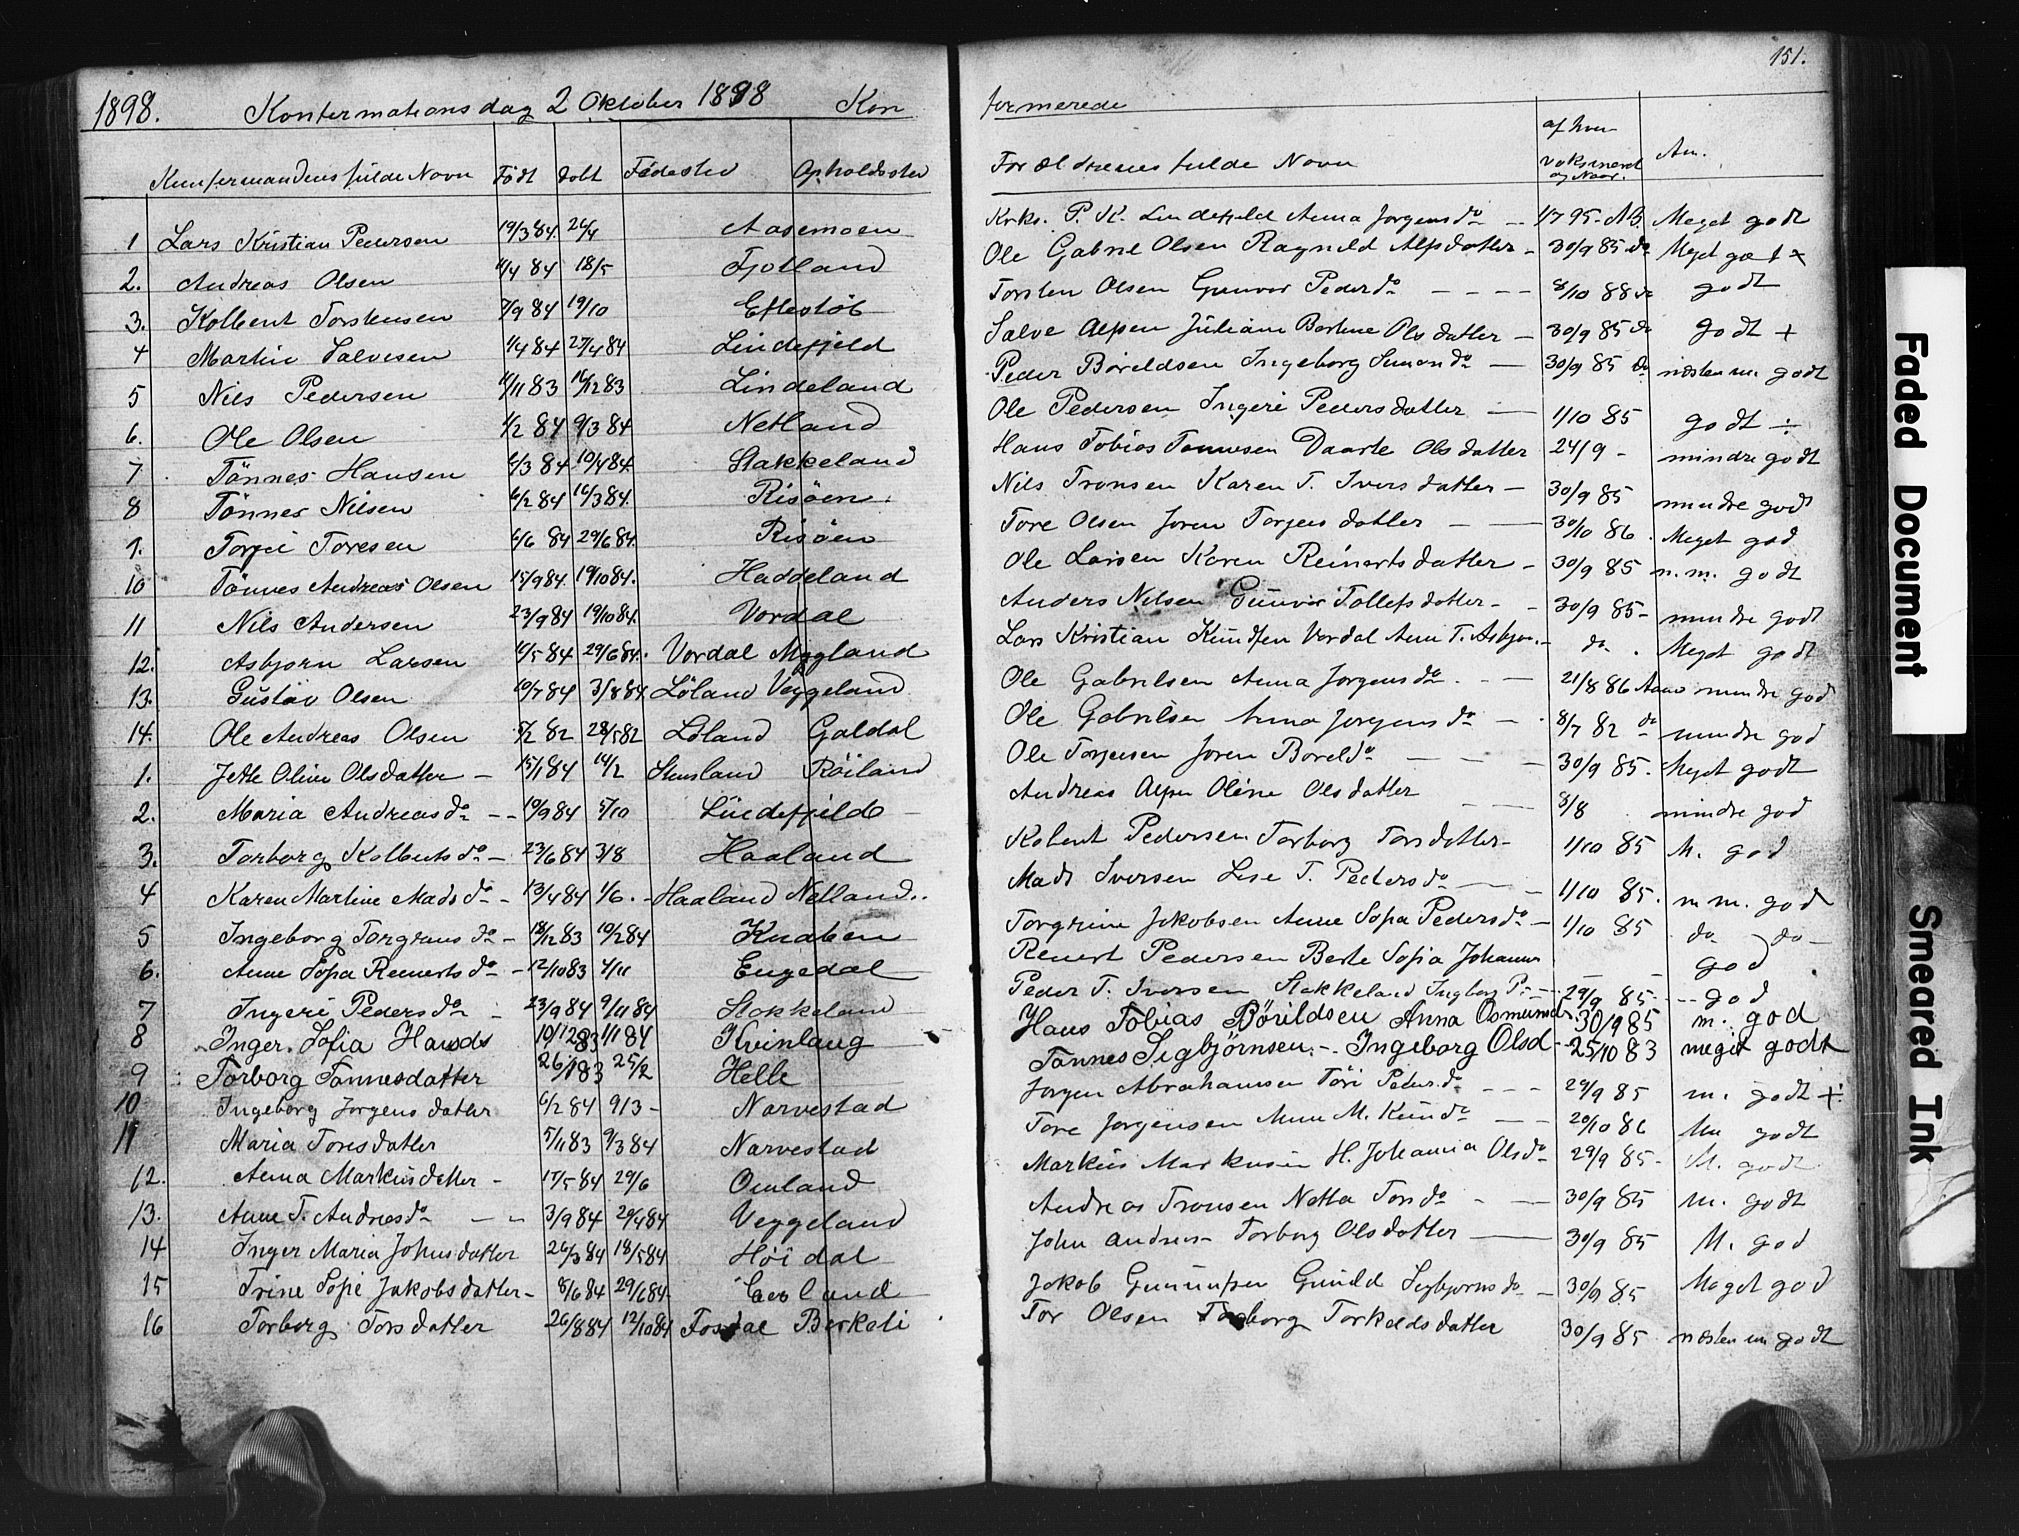 151.
1898. Konfermationsdag 2 Oktober 1898 Kon
Kunfermandens fulde Navn Födt dobt Fødested Opholdssted
1 Lars Kristian Pedersen 19/3 84. 26/4 Aasemoen
2. Andreas Olsen 11/4 84 18/5 Fjotland
3. Kolbent Torstensen 7/9 84 19/10 Eftestöl
4 Martin Salvesen 1/4 84 27/4 84 Lindefjeld
5 Nils Pedersen 11/11 83 16/12 83 Lindeland
6. Ole Olsen 1/2 84 9/3 84 Netland
7 Tönnes Hansen 6/3 84 10/4 84 Stakkeland
8 Tönnes Nilsen 6/2 84 16/3 84. Risöen
9. Torjei Toresen 6/6 84 29/6 84. Risöen
10 Tönnes Andreas Olsen 15/9 84. 19/10 84. Haddeland
11 Nils Andersen 23/9 84 19/10 84. Vordal
12. Asbjorn Larsen 11/5 84 29/6 84. Vordal Mygland
13. Gustav Olsen 10/7 84 3/8 84 Löland Veggeland
14. Ole Andreas Olsen 5/2 82 28/5 82 Løland Galdal
1. Jette Oline Olsdatter - 15/1 84 14/2 Stensland Röiland
2. Maria Andreas do -- 10/9 84 5/10 Lindefjeld
3. Torborg Kolbents do - 23/6 84 3/8 Haaland
4 Karen Martine Mads do - 13/4 84 1/6. - Haaland Netland..
5 Ingeborg Torgrims do - 18/12 83 10/2 84 Knaben
6. Anne Sofia Reinerts do - 12/10 83 4/11 Engedal
7 Ingeri Peders do - 23/9 84 9/11 84 Stokkeland
8 Inger. Sofia Hansds 10/12 83 1/1 84 Kvinlaug
9 Torborg Tønnesdatter 26/1 83 25/2 Helle
10 Ingeborg Jorgens datter 6/2 84 9/3 - Narvestad
11 Maria Toresdatter 5/11 83 9/3 84 Narvestad
12. Anna Markusdatter - 17/5 84 29/6 Omland
13. Anne T. Andreas do -- 3/9 84 20/4 84 Veggeland
14 Inger Maria Johnsdatter 26/3 84 18/5 84 Höidal
15 Trine Sofie Jakobsdatter - 8/6 84 29/6 84. Eeland
16 Torborg Torsdatter 26/8 84 12/10 84 Fosdal Berkeli
formerede
Forældrenes fulde Navn af hvem vaksineret og Naar. An.
Krks. P. K. Lindefjeld Anna Jorgens do -- 1/7 95 - AB Meget godt
Ole Gabriel Olsen Ragnild Alfsdatter - 30/9 85 do Meget godt
Torsten Olsen Gunvor Peders do ---- 8/10 88 do godt
Salve Alfsen Juliane Bertine Olsdatter - 30/9 85 do godt +
Peder Böreldsen Ingeborg Simons do - 30/9 85 do næsten m. godt
Ole Pedersen Ingeri Pedersdatter - 1/10 85 godt ÷
Hans Tobias Tønnesen Daarte Olsdatter 24/9 - mindre godt
Nils Tronsen Karen T. Ivers datter - 30/9 85 mindre godt
Tore Olsen Joren Torjeus datter -- 30/10 86. Meget god
Ole Larsen Karen Reinertsdatter - 30/9 85 m. m. godt
Anders Nilsen Gunvor Tollefsdatter -- 30/9 85 - mindre godt
Lars Kristian Knudsen Vordal Anne T. Asbjor. - do. Meget godt
Ole Gabrilsen Anna Jorgens do. -- 21/8 86 Aano mindre god
Ole Gabrilsen Anna Jorgens do - 8/7 82 do mindre god
Ole Torjeusen Joren Boreld do --- 30/9 85. Meget godt
Andreas Alfsen Oline Olsdatter -- 8/8 mindre god
Kolbent Pedersen Torborg Torsdatter - 1/10 85 M. god
Mads Iversen Lise T. Peders do --- 1/10 85. m m. god
Torgrim Jakobsen Anne Sofia Peders do - 1/10 85 do do -
Reinert Pedersen Berte Sofia Johannes -- god
Peder T. Iversen Stakkeland Ingborg P. -- 29/9 85 -- god
Hans Tobias Börildsen Anna Osmundsd 30/9 85 m. god
Tønnes Sigbjørnsen. -. Ingeborg Olsd - 25/10 83 meget godt
Jorgen Abrahamsen Töri Peders do --- 29/9 85 m. godt ÷
Tore Jorgensen Anne M. Knuds do -- 20/10 86 Mn godt
Markus Markusen H. Johanna Olsdo - 29/9 85 - M. godt
Andreas Tronsen Netta Tors do -- 30/9 85 m. godt
John Andreas Torborg Olsdatter - 30/9 85 M. god
Jakob Gunnufsen Gunild Sigbjorns do - 30/9 85 Meget god
Tor Olsen Torborg Torkelds datter 30/9 85 næsten m godt
Faded Document
Smeared Ink